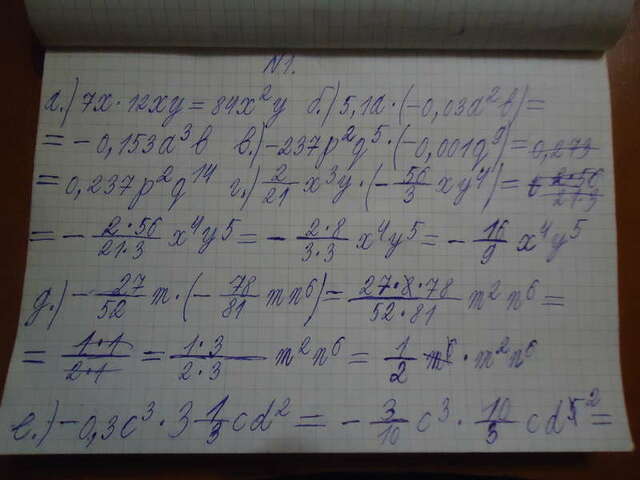 №1.
а.) 7x · 12xy = 84x²y б.) 5,1a · (-0,03a²b) =
= -0,153a³b в.) -237p²q⁵ · (-0,001q⁹) =
= 0,237p²q¹⁴ г.) 2/21 x³y · (-56/3 xy⁴) =
= - 2·56/21·3 x⁴y⁵ = - 2·8/3·3 x⁴y⁵ = - 16/9 x⁴y⁵
д.) - 27/52 m · (- 78/81 mn⁶) = 27·78/52·81 m²n⁶ =
= 1·3/2·3 m²n⁶ = 1/2 · m²n⁶
е.) -0,3c³ · 3 1/3 cd² = - 3/10 c³ · 10/3 cd² =